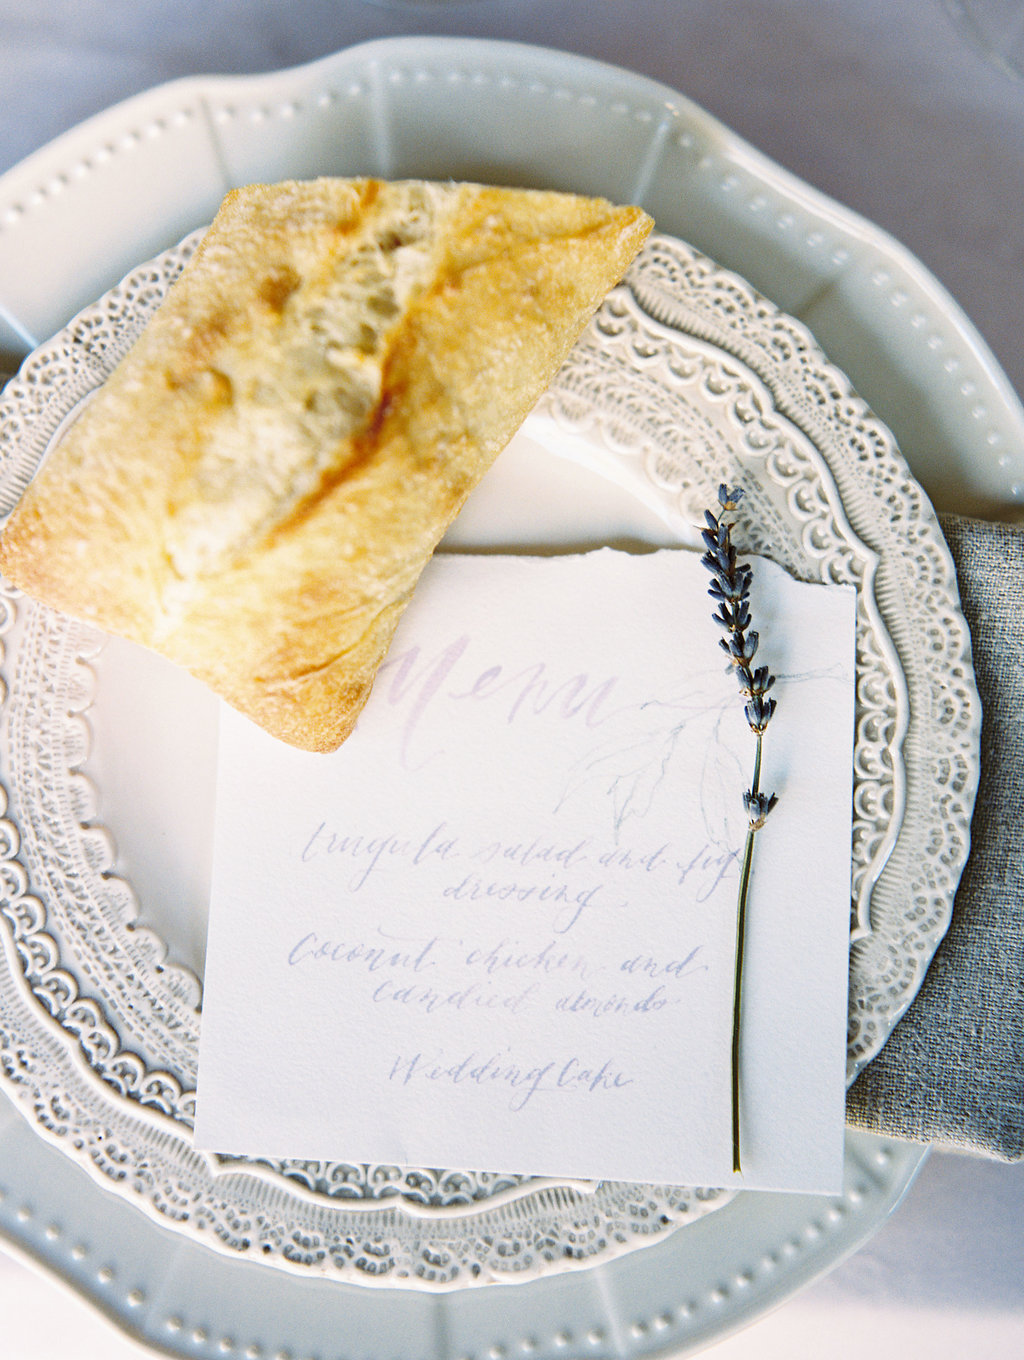 Menu
arugula salad and fig
dressing
Coconut chicken and
candied almonds
Wedding Cake